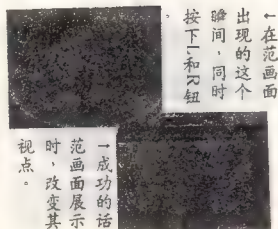 ↑在范画面
出现的这个
瞬间，同时
按下L和R钮
。
→成功的话
范画面展示
时，改变其
视点。